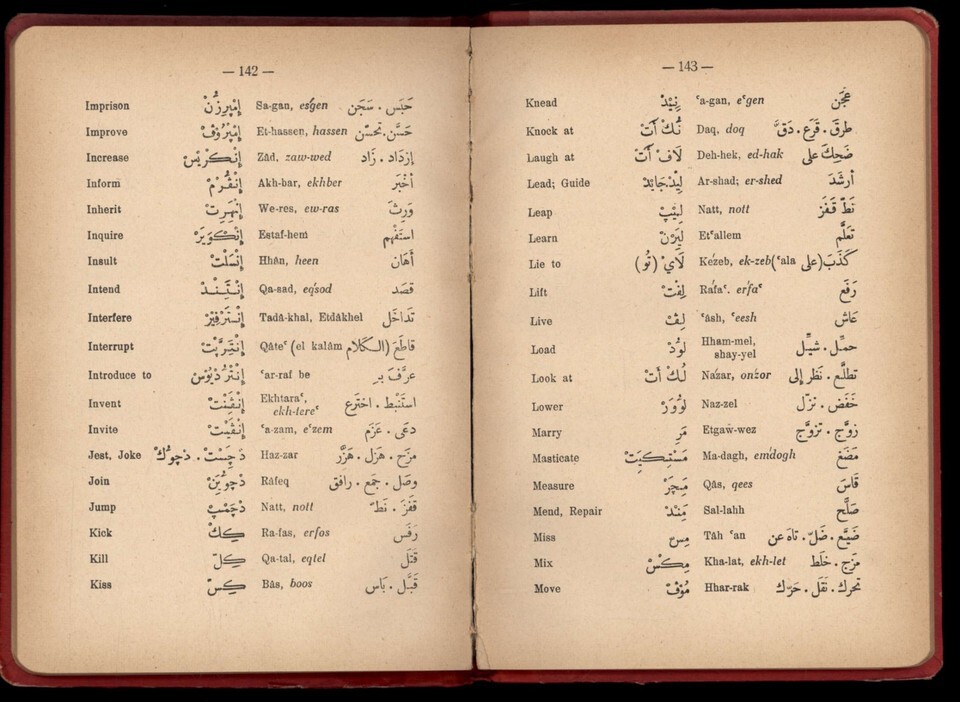 — 142 —
Imprison إِمْپِرِزُنْ Sa-gan, esgen حَبَس . سَجَن
Improve إِمْپُرُوڤْ Et-hassen, hassen حَسَّن . تحسّن
Increase إِنْكْرِيسْ Zâd, zaw-wed إزدَاد . زَاد
Inform إِنْفُرْمْ Akh-bar, ekhber أخْبَر
Inherit إِنْهِرِتْ We-res, ew-ras وَرِثَ
Inquire إِنْكْوَيَرْ Estaf-hem استَفْهم
Insult إِنْسَلْتْ Hhân, heen أهَان
Intend إِنْتِنْدْ Qa-sad, eqsod قصَد
Interfere إِنْتَرْفِيرْ Tadâ-khal, Etdâkhel تَداخَل
Interrupt إِنْتِرَپْتْ Qâteʿ (el kalâm قاطَعَ (الكَلام
Introduce to إِنْتْرُدْيُوسْ ʿar-raf be عرَّفَ بـِ
Invent إِنْڤِنْتْ Ekhtaraʿ, استَنْبَط . اخترع
ekh-tereʿ
Invite إِنْڤَيْتْ ʿa-zam, eʿzem دعَى . عَزَم
Jest, Joke دْچِسْتْ . دْچُوكْ Haz-zar مزَح . هَزل . هَزَّر
Join دْچُويْنْ Râfeq وصَل . جمَع . رافق
Jump دْچَمْپْ Natt, nott قفَز . نَطّ
Kick كِكْ Ra-fas, erfos رَفَس
Kill كِلّ Qa-tal, eqtel قَتَل
Kiss كِسّ Bâs, boos قَبَّل . بَاس
— 143 —
Knead نِيدْ ʿa-gan, eʿgen عَجَن
Knock at نُكْ أَتْ Daq, doq طرق . قَرَع . دَقَّ
Laugh at لَافْ أَتْ Deh-hek, ed-hak ضَحِكَ على
Lead; Guide لِيدْ جَايْدْ Ar-shad; er-shed أرشَدَ
Leap لِيپْ Natt, nott نَطّ قَفَز
Learn لِيَرْنْ Etʿallem تعَلَّم
Lie to لَايْ (تُو) Kezeb, ek-zeb(ʿala كَذَبَ(على
Lift لِفْتْ Rafaʿ. erfaʿ رَفَع
Live لِڤْ ʿâsh, ʿeesh عَاش
Load لَوُدْ Hham-mel, حمَّل . شيَّل
shay-yel
Look at لُكْ أَتْ Nazar, onzor تطلَّع . نَظر إلى
Lower لَوْوَرْ Naz-zel خَفَض . نزّل
Marry مَرِ Etgaw-wez زوَّج . تزوَّج
Masticate مَسْتِكَيْتْ Ma-dagh, emdogh مَضَغ
Measure مِيچَرْ Qâs, qees قَاسَ
Mend, Repair مِنْدْ Sal-lahh صَلَّح
Miss مِسّ Tâh ʿan ضَيَّع . ضَلّ . تاه عن
Mix مِكْسْ Kha-lat, ekh-let مزَج . خَلَط
Move مُوڤْ Hhar-rak تحرك . نَقَل . حَرّك